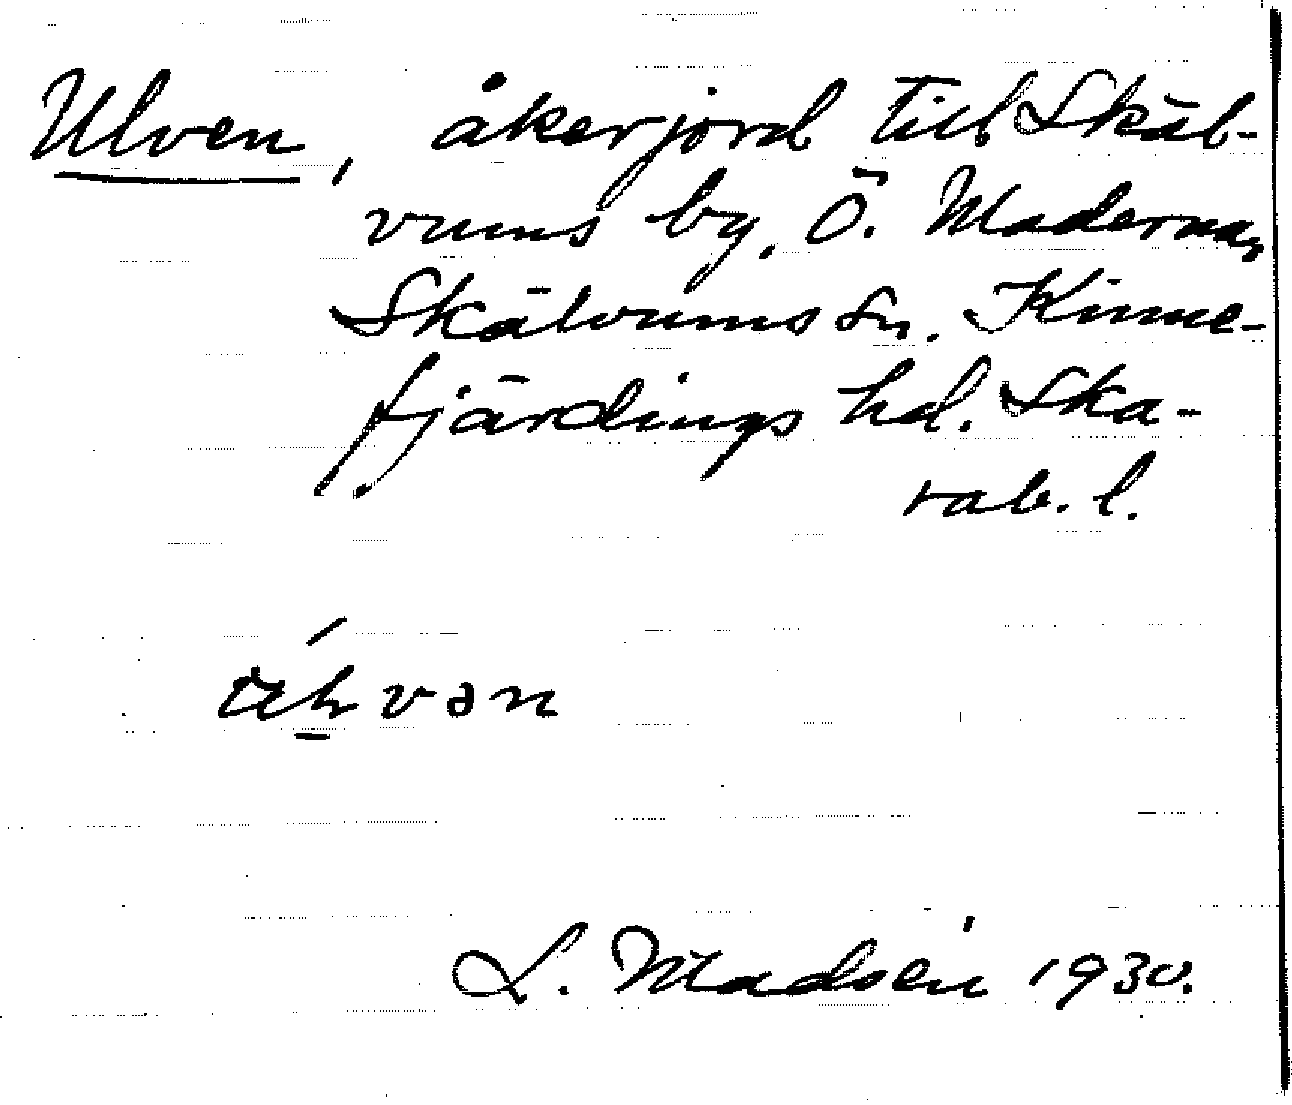 Ulven, åkerjord till Skäl-
vums by, Ö. Maderna,
Skälvums sn. Kinne-
fjärdings hd. Ska-
rab. l.
L. Madsén 1930.